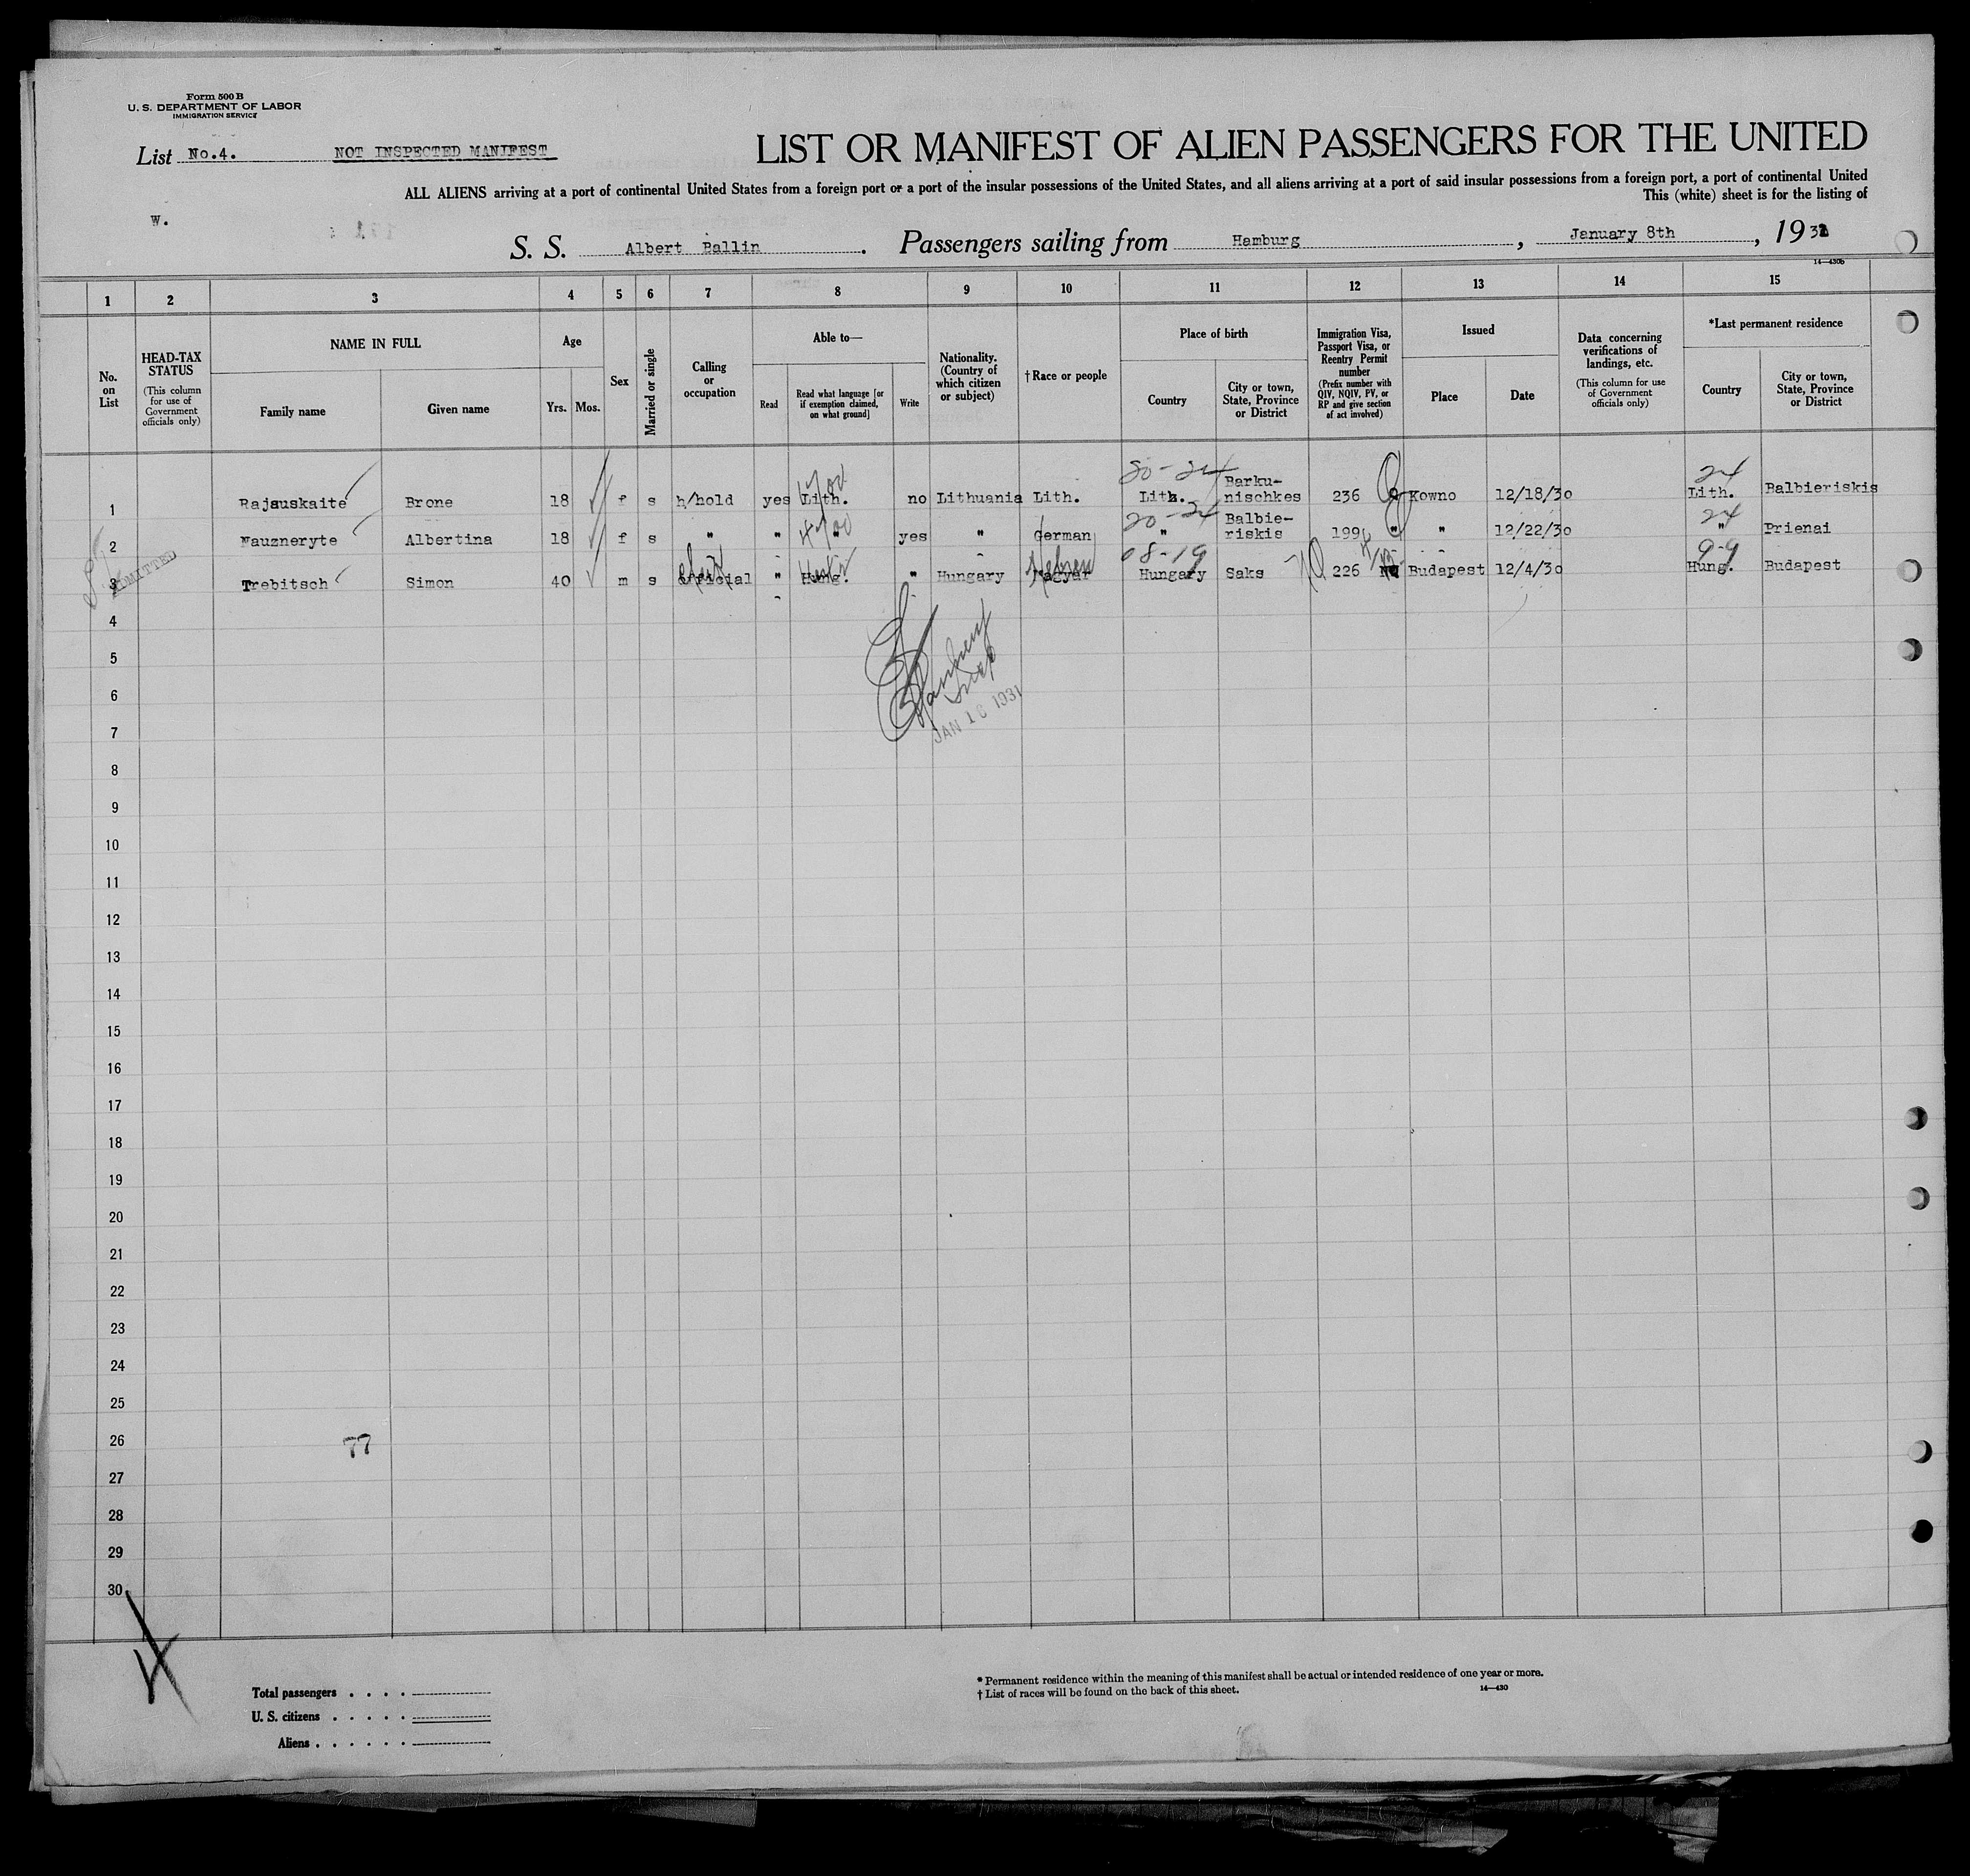 Form 500 B
U. S. DEPARTMENT OF LABOR
IMMIGRATION SERVICE
List No.4. NOT INSPECTED MANIFEST
LIST OR MANIFEST OF ALIEN PASSENGERS FOR THE UNITED
ALL ALIENS arriving at a port of continental United States from a foreign port or a port of the insular possessions of the United States, and all aliens arriving at a port of said insular possessions from a foreign port, a port of continental United
This (white) sheet is for the listing of
W.
S. S. Albert Ballin. Passengers sailing from Hamburg, January 8th, 1931
14—430b
1 2 3 4 5 6 7 8 9 10 11 12 13 14 15
No. on List
HEAD-TAX STATUS
(This column for use of Government officials only)
NAME IN FULL
Family name
Given name
Age
Yrs.
Mos.
Sex
Married or single
Calling or occupation
Able to—
Read
Read what language [or if exemption claimed, on what ground]
Write
Nationality. (Country of which citizen or subject)
†Race or people
Place of birth
Country
City or town, State, Province or District
Immigration Visa, Passport Visa, or Reentry Permit number
(Prefix number with QIV, NQIV, PV, or RP and give section of act involved)
Issued
Place
Date
Data concerning verifications of landings, etc.
(This column for use of Government officials only)
*Last permanent residence
Country
City or town, State, Province or District
20-24 24
1 Rajauskaite Brone 18 f s h/hold yes Lith. no Lithuania Lith. Lith. Barku-nischkes 236 Kowno 12/18/30 Lith. Balbieriskis
20-24 24
2 Nauzneryte Albertina 18 f s " " " yes " German " Balbie-riskis 199 " " 12/22/30 " Prienai
08-19 9-9
3 Trebitsch Simon 40 m s official " Hung. " Hungary Magyar Hungary Saks 226 Budapest 12/4/30 Hung. Budapest
clerk Hebrew
ADMITTED
4
5
6
7
JAN 18 1931
8
9
10
11
12
13
14
15
16
17
18
19
20
21
22
23
24
25
26
77
27
28
29
30
Total passengers . . . .
U. S. citizens . . . . .
Aliens . . . . . .
* Permanent residence within the meaning of this manifest shall be actual or intended residence of one year or more.
† List of races will be found on the back of this sheet.
14—430